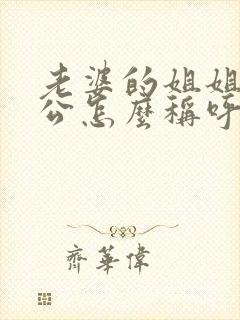 老婆的姐姐
公怎麼稱呼
齊華偉